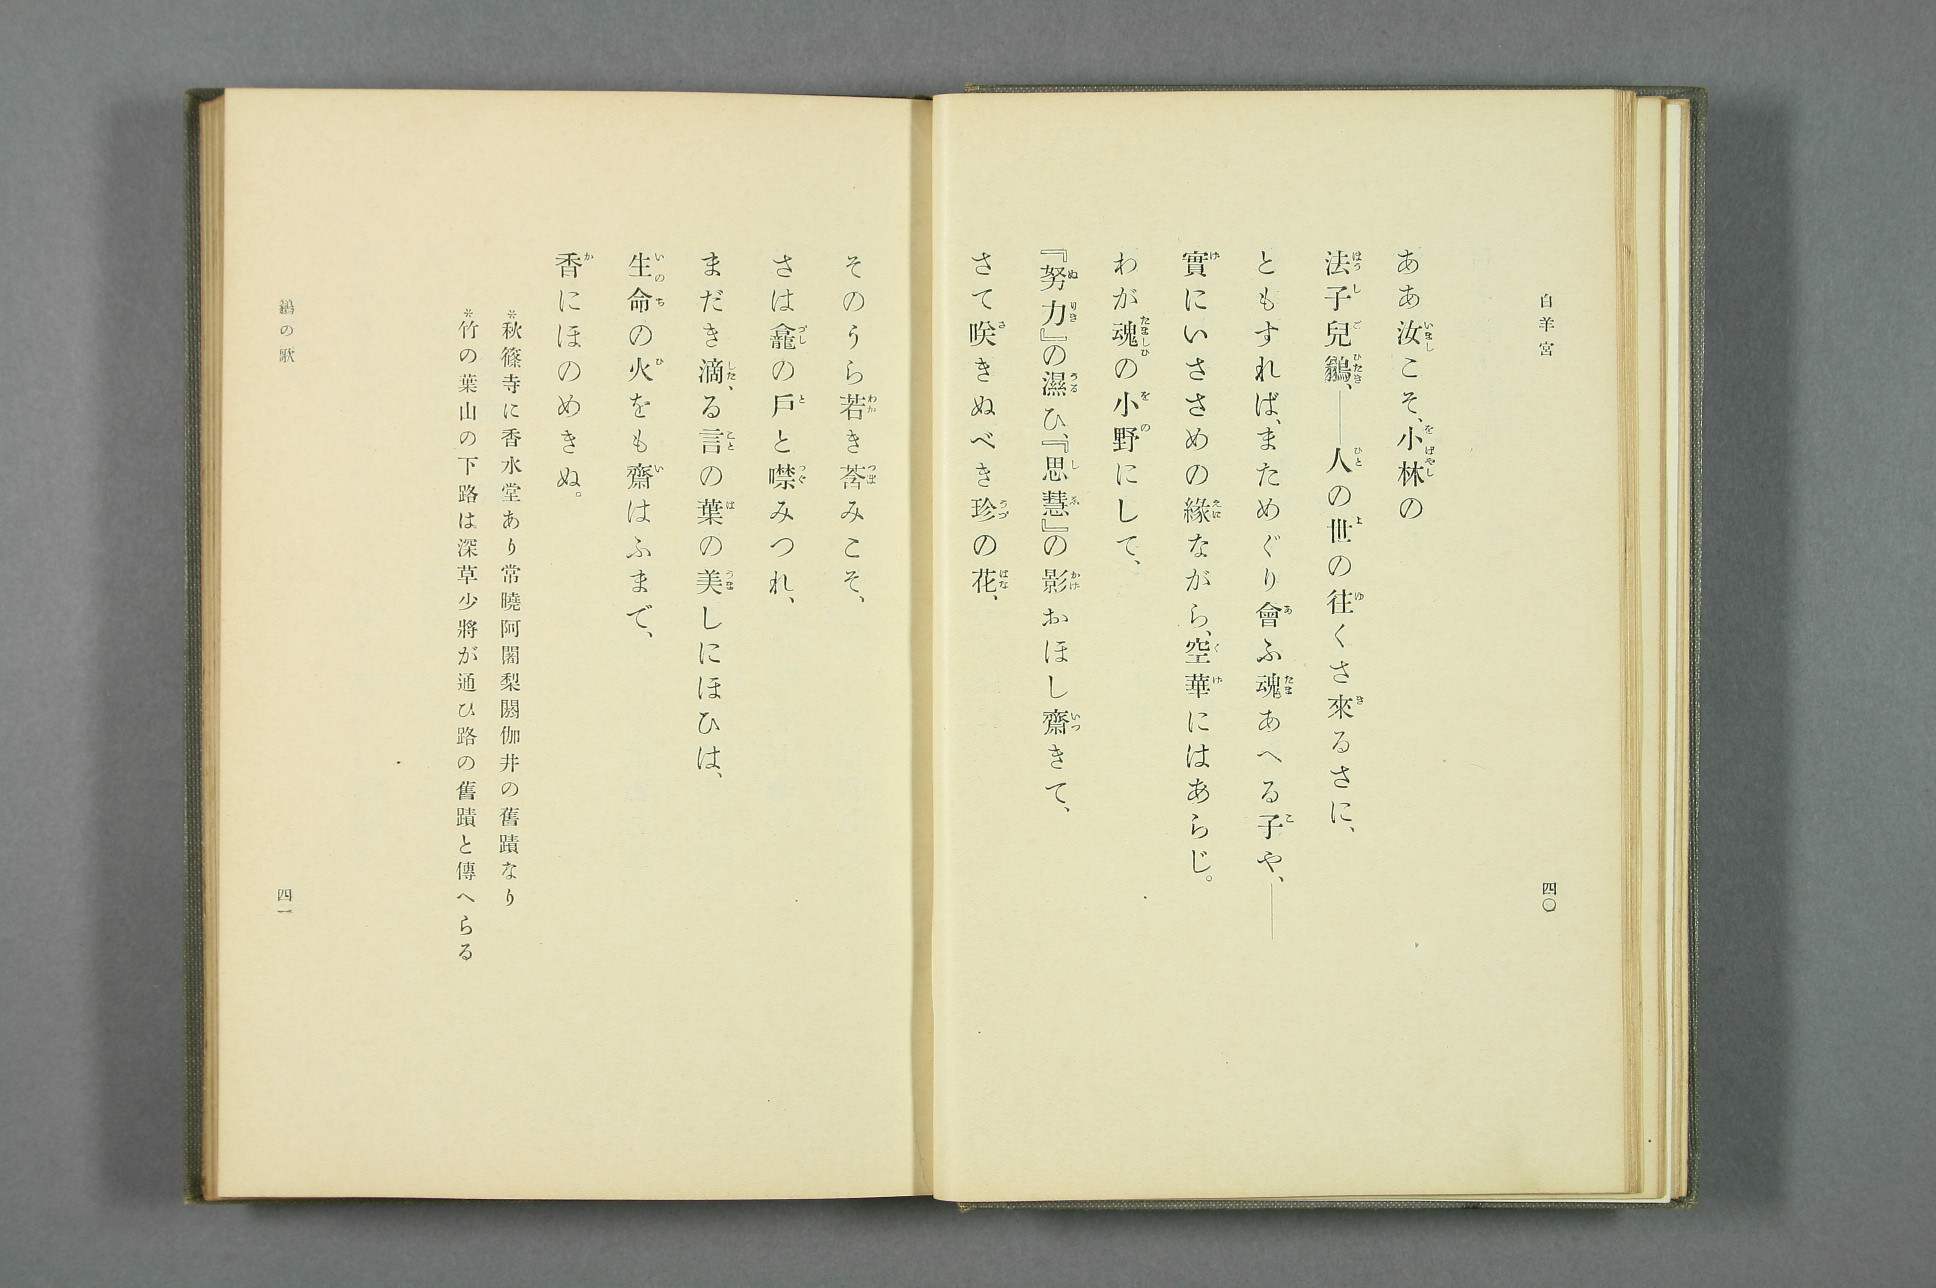 白羊宮
ああ汝こそ、小林の
法子兒鶲、――人の世の往くさ來るさに、
ともすれば、まためぐり會ふ魂あへる子や、――
實にいささめの緣ながら、空華にはあらじ。
わが魂の小野にして、
『努力』の濕ひ、『思慧』の影おほし齋きて、
さて咲きぬべき珍の花、
四〇
そのうら若き莟みこそ、
さは龕の戶と噤みつれ、
まだき滴、る言の葉の美しにほひは、
生命の火をも齋はふまで、
香にほのめきぬ。
*秋篠寺に香水堂あり常曉阿闍梨閼伽井の舊蹟なり
*竹の葉山の下路は深草少將が通ひ路の舊蹟と傳へらる
鶲の歌
四一